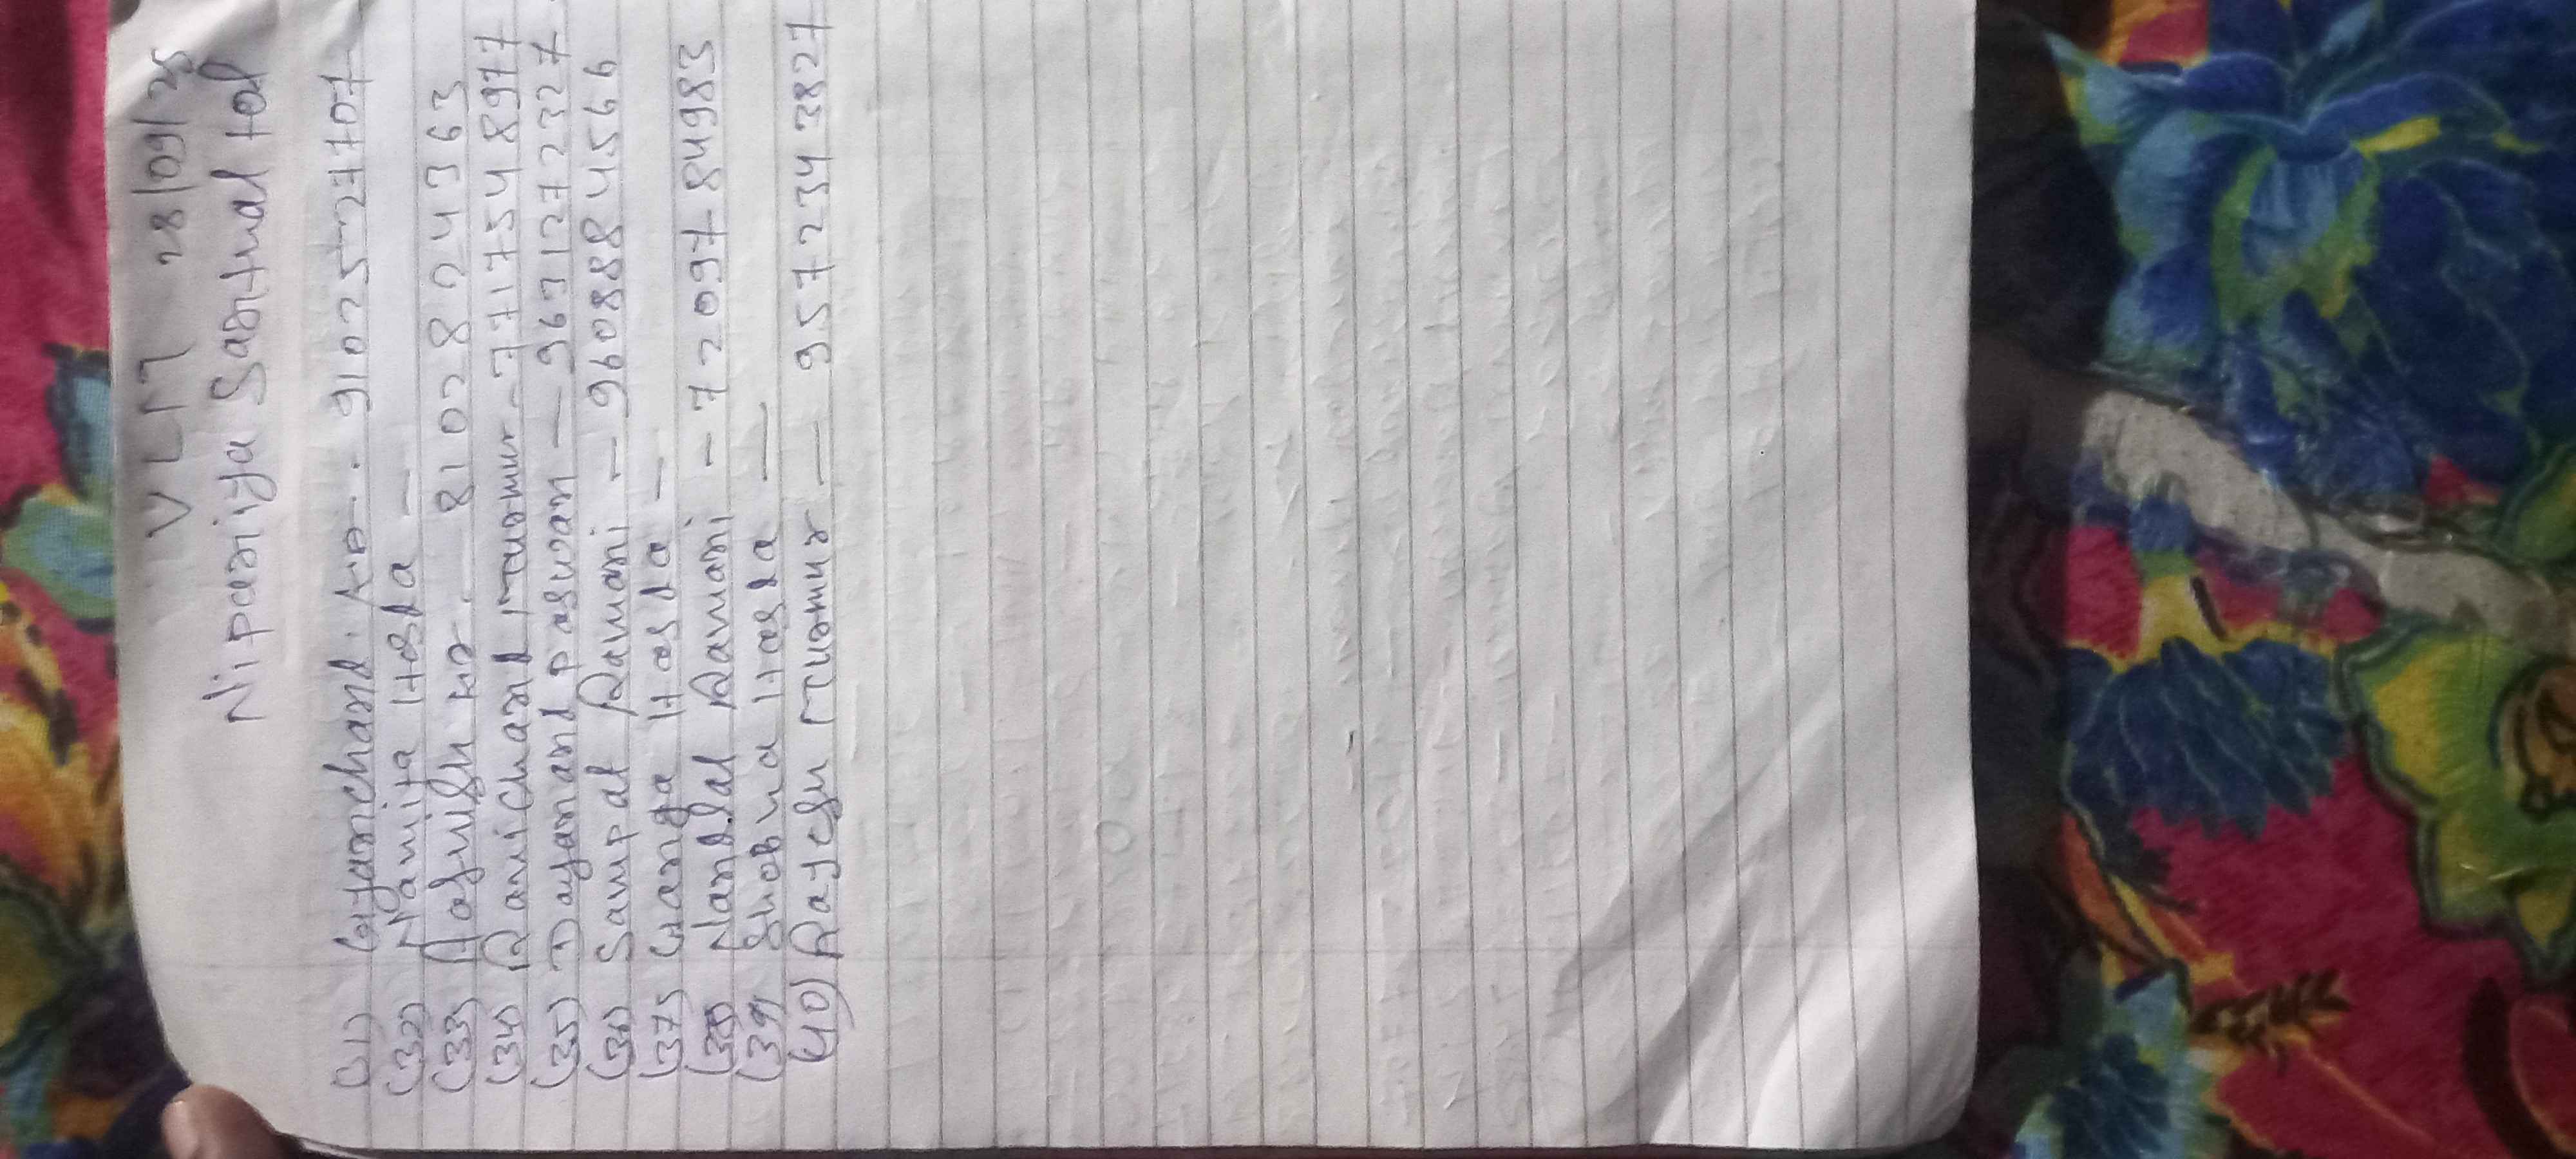 VLM 28/09/25
Nipaniya Santhal tol
(31) Gyanchand. Kr. - 9102527707
(32) Namita Hosda -
(33) Aayush Kr. - 8102824363
(34) Ramchand Murmur - 7717548977
(35) Dayanand Paswan - 9631272327
(36) Sampat Ramani - 9608884566
(37) Ganga Hosda -
(38) Nandlal Ramani - 7209784983
(39) Shobha Hosda -
(40) Rajesh Murmur - 9572343827